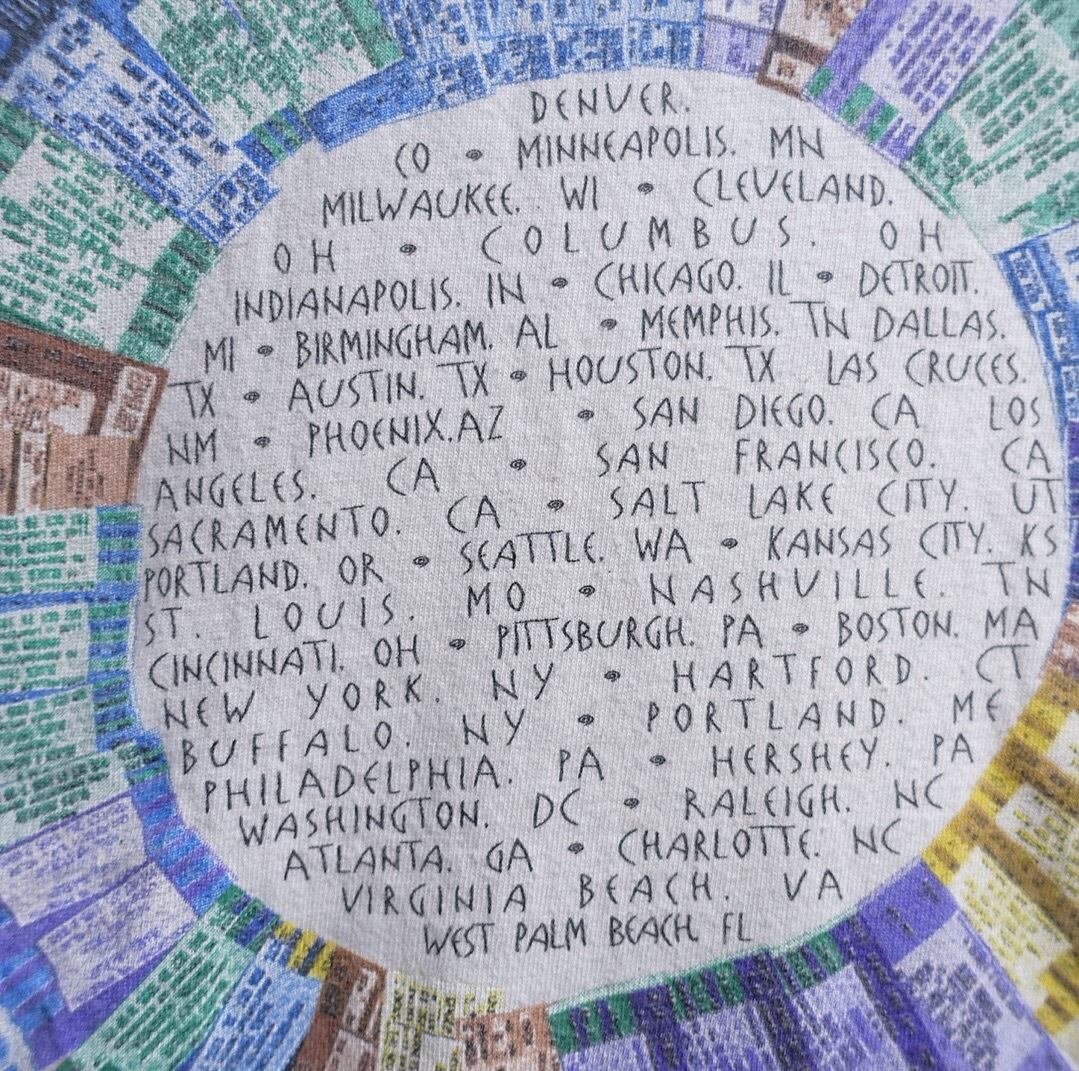 DENVER.
CO • MINNEAPOLIS. MN
MILWAUKEE. WI • CLEVELAND.
OH • COLUMBUS. OH
INDIANAPOLIS. IN • CHICAGO. IL • DETROIT.
MI • BIRMINGHAM. AL • MEMPHIS. TN DALLAS.
TX • AUSTIN. TX • HOUSTON. TX LAS CRUCES.
NM • PHOENIX.AZ • SAN DIEGO. CA LOS
ANGELES. CA • SAN FRANCISCO. CA
SACRAMENTO. CA • SALT LAKE CITY. UT
PORTLAND. OR • SEATTLE. WA • KANSAS CITY. KS
ST. LOUIS. MO • NASHVILLE. TN
CINCINNATI. OH • PITTSBURGH. PA • BOSTON. MA
NEW YORK. NY • HARTFORD. CT
BUFFALO. NY • PORTLAND. ME
PHILADELPHIA. PA • HERSHEY. PA
WASHINGTON. DC • RALEIGH. NC
ATLANTA. GA • CHARLOTTE. NC
VIRGINIA BEACH. VA
WEST PALM BEACH. FL